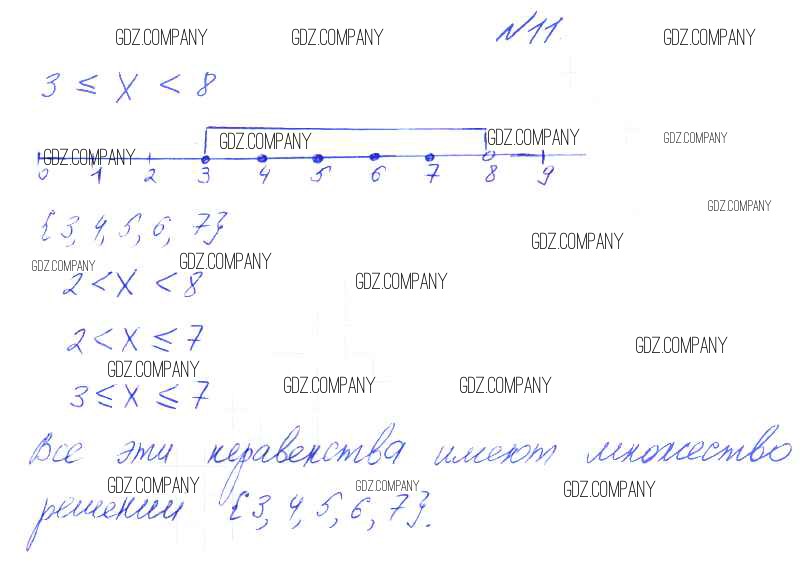 GDZ.COMPANY GDZ.COMPANY №11. GDZ.COMPANY
3 ≤ x < 8
GDZ.COMPANY GDZ.COMPANY GDZ.COMPANY GDZ.COMPANY
0 1 2 3 4 5 6 7 8 9
GDZ.COMPANY
{3, 4, 5, 6, 7}
GDZ.COMPANY
GDZ.COMPANY GDZ.COMPANY
2 < x < 8
GDZ.COMPANY
2 < x ≤ 7
GDZ.COMPANY
GDZ.COMPANY
3 ≤ x ≤ 7
GDZ.COMPANY GDZ.COMPANY
Все эти неравенства имеют множество
GDZ.COMPANY GDZ.COMPANY GDZ.COMPANY
решении {3, 4, 5, 6, 7}.